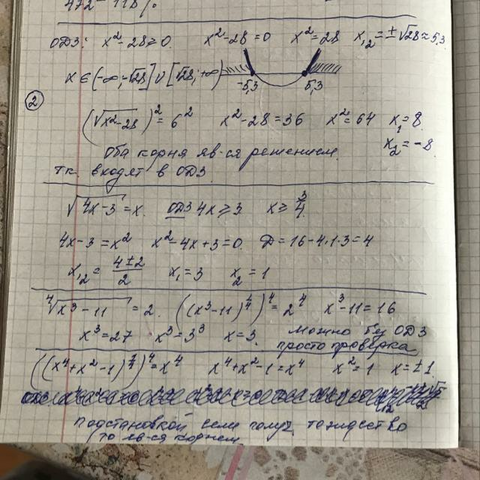 ОДЗ: x²-28≥0. x²-28=0 x²=28 x₁,₂=±√28≈5,3
x∈(-∞;-√28]∪[√28;+∞) -5,3 5,3
②
(√x²-28)²=6² x²-28=36 x²=64 x₁=8
x₂=-8.
Оба корня яв-ся решением.
т.к. входят в ОДЗ
√4x-3=x. ОДЗ 4x≥3 x≥3/4
4x-3=x² x²-4x+3=0 D=16-4·1·3=4
x₁,₂=(4±2)/2 x₁=3 x₂=1
⁴√x³-11=2. ((x³-11)^¼)⁴=2⁴ x³-11=16
x³=27 x³=3³ x=3. Можно без ОДЗ
просто проверка
((x⁴+x²-1)^¼)⁴=x⁴ x⁴+x²-1=x⁴ x²=1 x=±1
подстановкой если получ тождество
то яв-ся корнем.